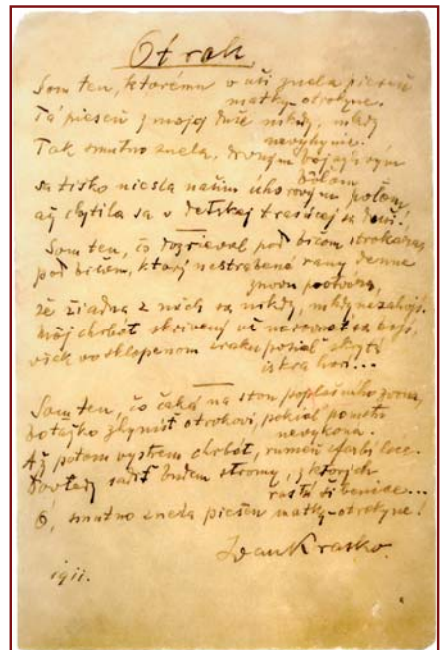 Otrok
Som ten, ktorému v uši znela pieseň
matky-otrokyne.
Tá pieseň z mojej duše nikdy, nikdy
nevyhynie.
Tak smutno znela, bojazlivým
bôlom
sa tisko niesla našim úhorovým poľom
až chytila sa v detskej trasúcej sa duši!
Som ten, čo dozrieval pod bičom otrokára,
pod bičom, ktorý nestrábené rany denne
znovu pootvára,
že žiadna z nich sa nikdy, nikdy nezahojí.
Môj chrbát skrivený už narovnať sa bojí,
však vo sklopenom zraku posiaľ skrytá
iskra horí...
Som ten, čo čaká na ston poplašného zvona,
bo ťažko zhynúť otrokovi, pokiaľ pomstu
nevykoná.
Až potom vystrem chrbát, rumeň sfarbí líce.
Dovtedy sadiť budem stromy, z ktorých
rastú šibenice...
Ó, smutno znela pieseň matky-otrokyne!
Ivan Krasko.
1911.